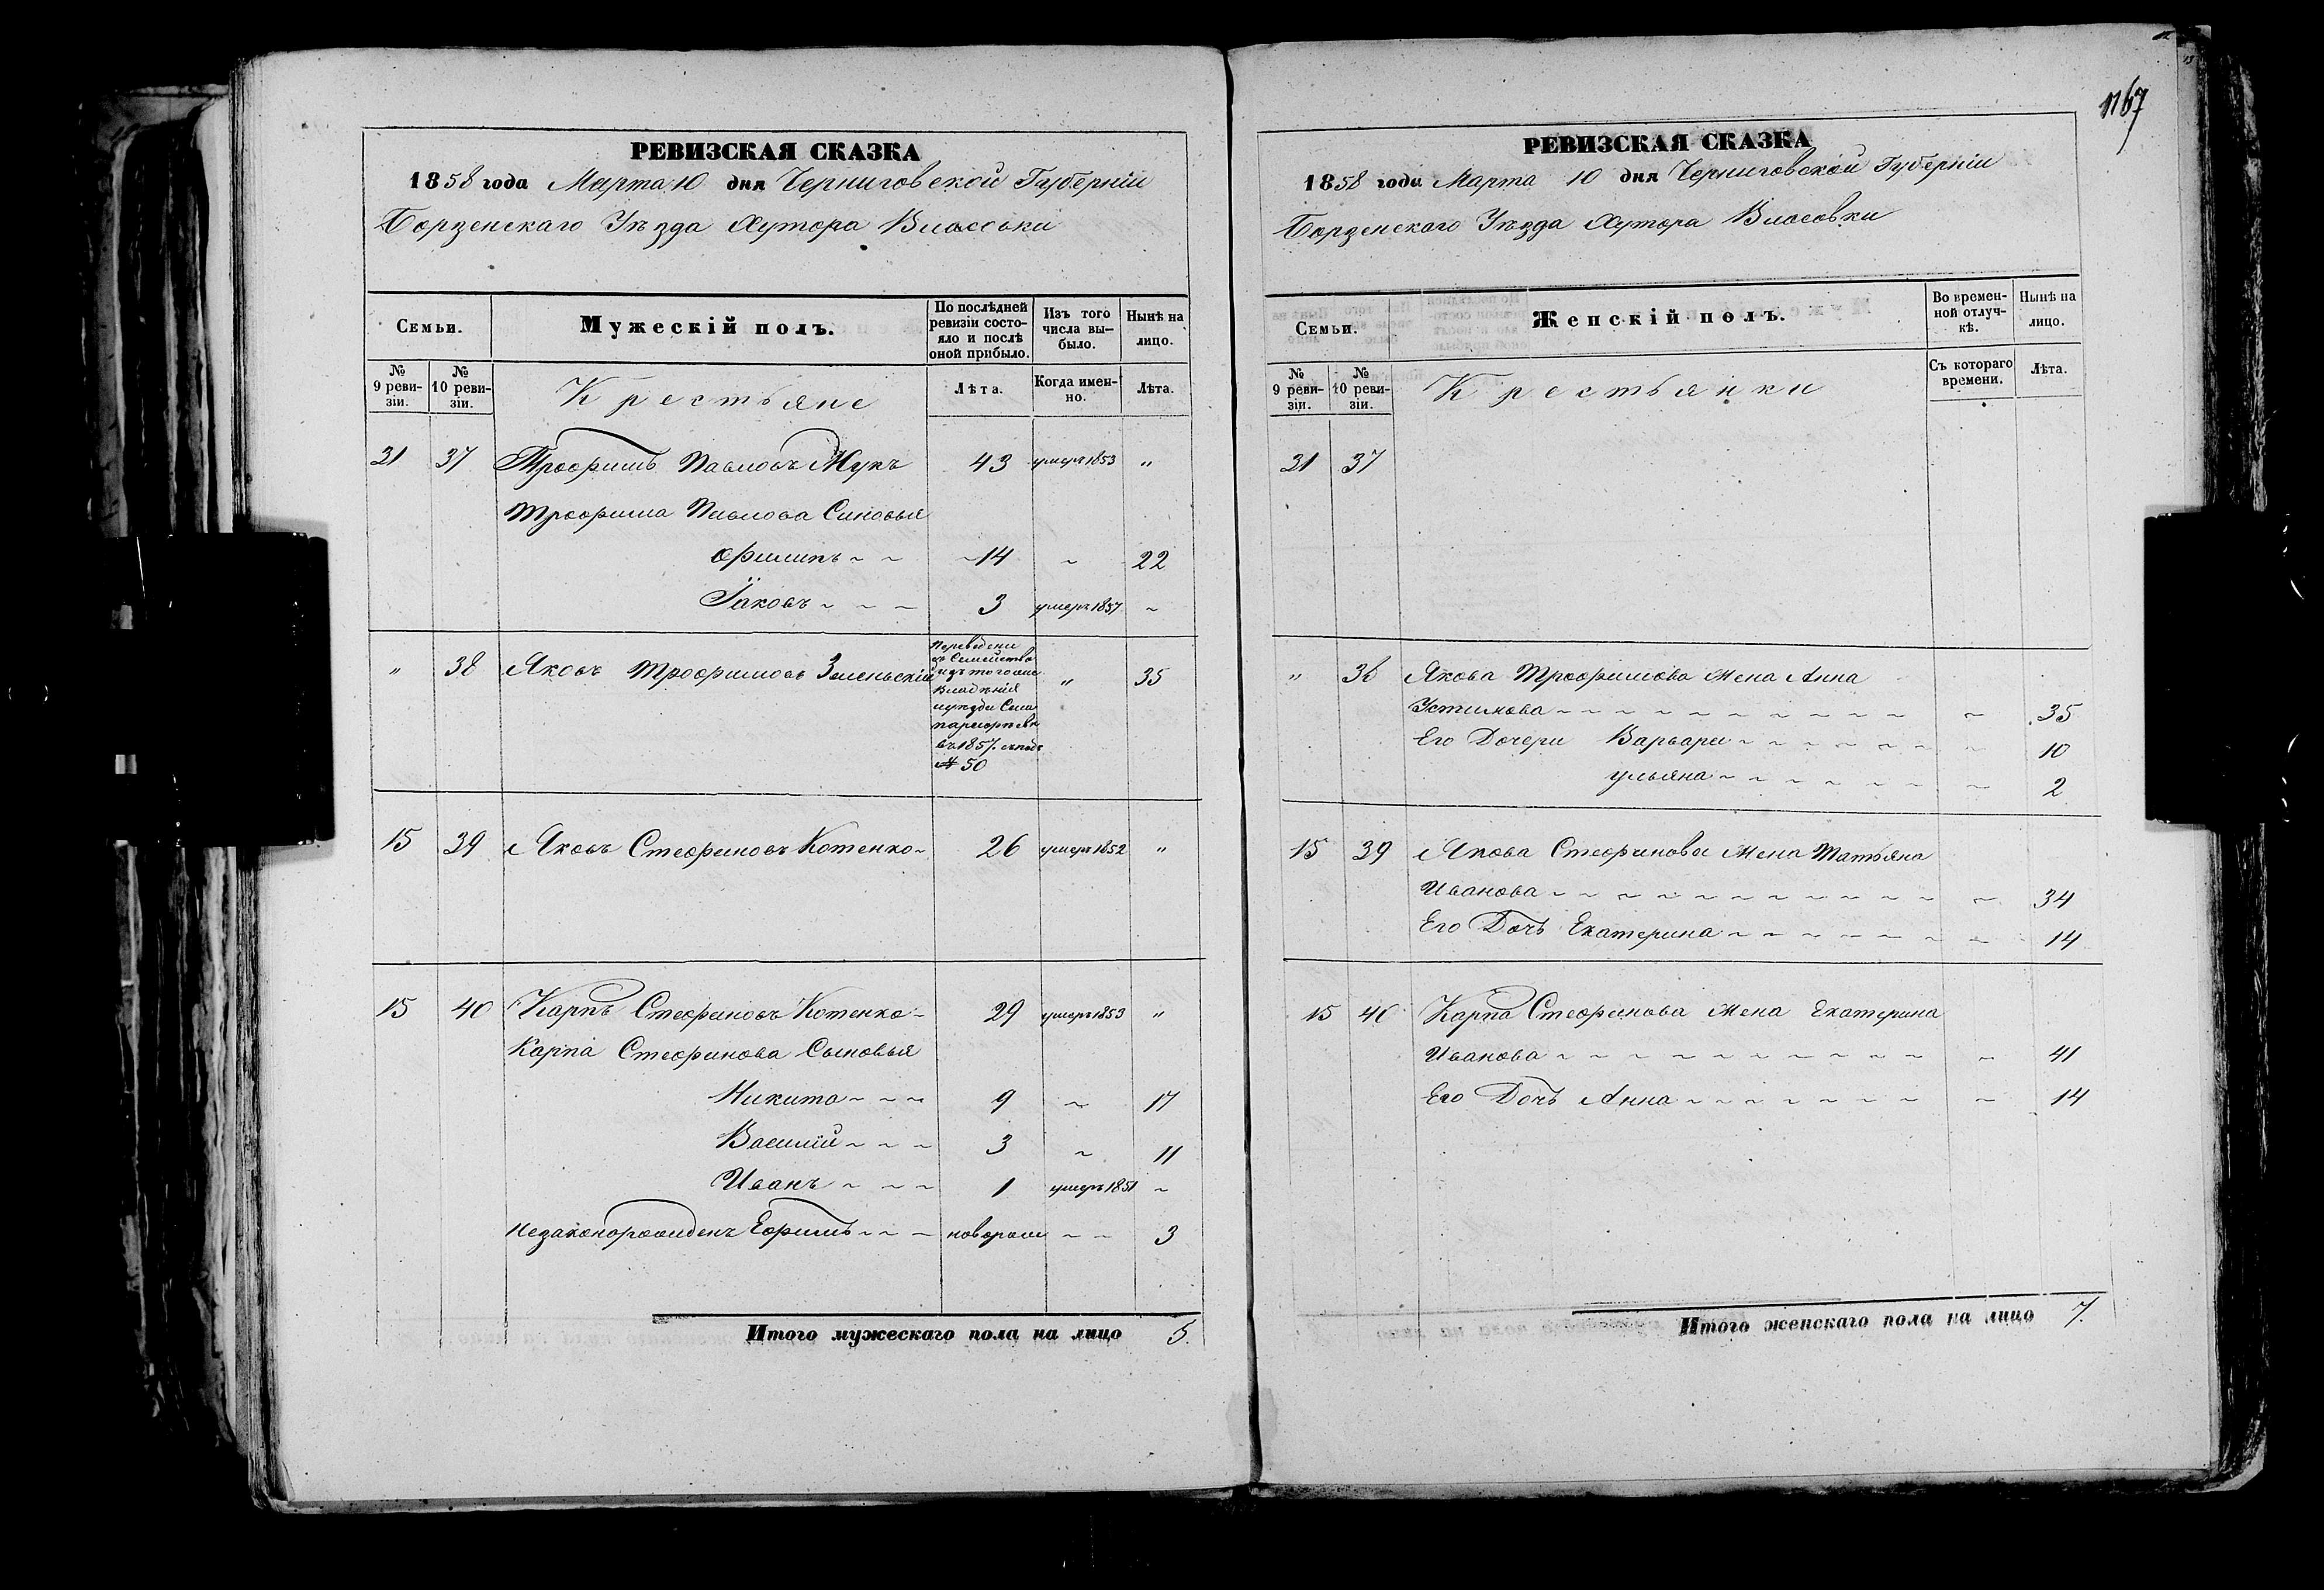 РЕВИЗСКАЯ СКАЗКА
1858 года Марта 10 дня Черниговской Губерніи
Борзенскаго Уѣзда Хутора Власовки
Семьи.
Мужескій полъ.
По послѣдней ревизіи состояло и послѣ оной прибыло.
Изъ того числа выбыло.
Нынѣ на лицо.
№ 9 ревизіи.
№ 10 ревизіи.
Крестьяне
Лѣта.
Когда именно.
Лѣта.
21 37 Трофимъ Павловъ Мукъ 43 умеръ 1853 "
Трофима Павлова Сыновья
Филипъ ~ ~ ~ 14 ~ 22
Іаковъ ~ ~ ~ 3 умеръ 1857 ~
" 38 Яковъ Трофимовъ Зеленьскій " 35
Переведенъ
съ Семейство
изъ того же
владѣнія
уѣзда Села
въ 1857. съ подъ
№ 50
15 39 Яковъ Стефановъ Котенко ~ 26 умеръ 1852 "
15 40 Карпъ Стефановъ Котенко ~ 29 умеръ 1853 "
Карпа Стефанова Сыновья
Никита ~ ~ ~ 9 ~ 17
Василій ~ ~ ~ 3 ~ 11
Иванъ ~ ~ ~ 1 умеръ 1851 ~
Незаконорожденъ Ефимъ ~ ~ ~ новорож ~ ~ 3
Итого мужескаго пола на лицо 5.
РЕВИЗСКАЯ СКАЗКА
1858 года Марта 10 дня Черниговской Губерніи
Борзенскаго Уѣзда Хутора Власовки
Семьи.
Женскій полъ.
Во временной отлучкѣ.
Нынѣ на лицо.
№ 9 ревизіи.
№ 10 ревизіи.
Крестьянки
Съ котораго времени.
Лѣта.
21 37
" 38 Якова Трофимова Жена Анна
Устимова ~ ~ ~ ~ ~ ~ ~ ~ ~ ~ ~ 35
Его Дочери Варвара ~ ~ ~ ~ ~ ~ ~ 10
Ульяна ~ ~ ~ ~ ~ ~ ~ 2
15 39 Якова Стефанова Жена Татьяна
Иванова ~ ~ ~ ~ ~ ~ ~ ~ ~ ~ ~ 34
Его Дочь Екатерина ~ ~ ~ ~ ~ ~ ~ 14
15 40 Карпа Стефанова Жена Екатерина
Иванова ~ ~ ~ ~ ~ ~ ~ ~ ~ ~ ~ 41
Его Дочь Анна ~ ~ ~ ~ ~ ~ ~ ~ 14
Итого женскаго пола на лицо 7.